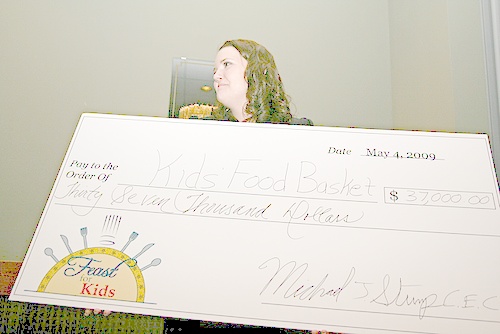 Date May 4, 2009
Pay to the
Order Of Kids' Food Basket $ 37,000.00
Thirty Seven Thousand Dollars
Feast
for
Kids
Michael J Stump C.E.C